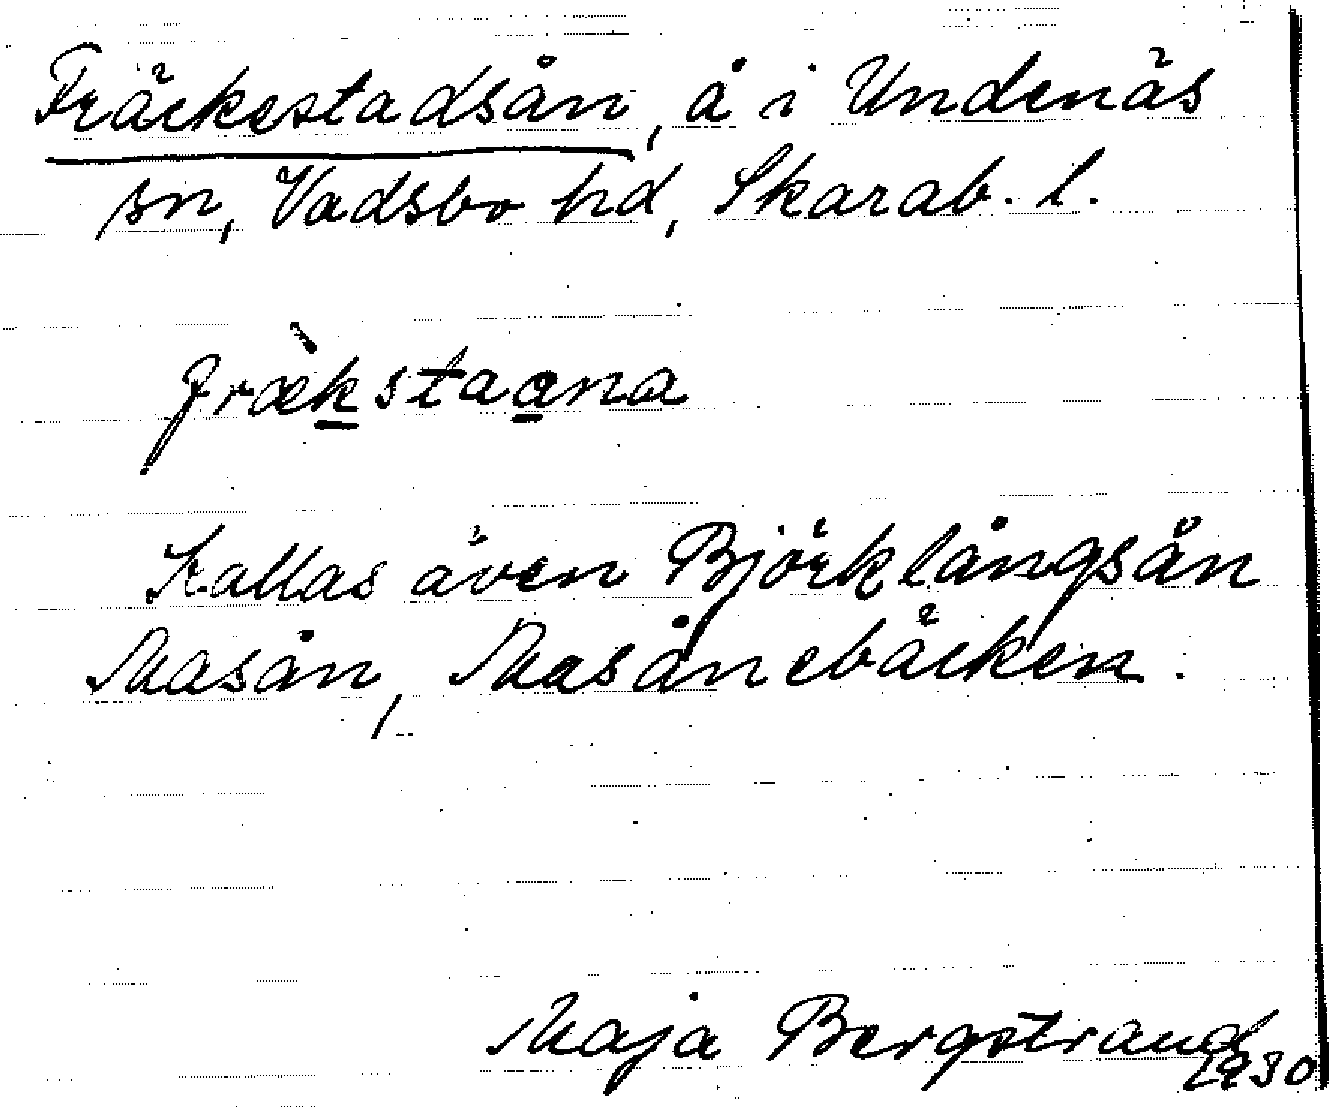 Fräckestadsån, å i Undenäs
sn, Vadsbo hd, Skarab. l.
fræ̀k̲staa̲na
Kallas även Björklångsån
Masån, Masånebäcken.
Maja Bergstrand
1930